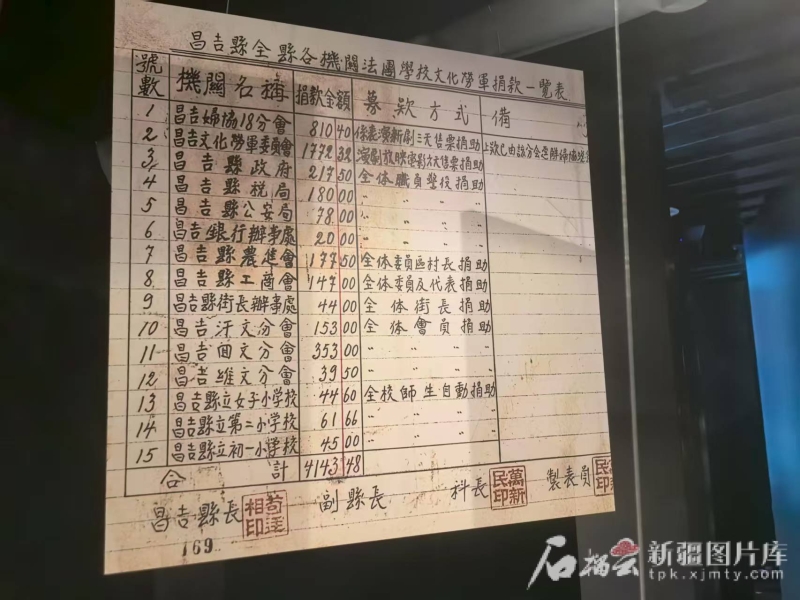 昌吉縣全縣各機關法團學校文化勞軍捐款一覽表
號數 機關名稱 捐款金額 募款方式 備
1 昌吉婦協18分會 810 40 係表演新劇三天售票捐助
2 昌吉文化勞軍委員會 1772 32 演劇放映電影六天售票捐助 上欵已由該分会逕解婦協
3 昌吉縣政府 217 50 全体職員警役捐助
4 昌吉縣稅局 180 00 〃 〃 〃
5 昌吉縣公安局 78 00 〃 〃 〃
6 昌吉銀行辦事處 20 00 〃 〃 〃
7 昌吉縣農進會 177 50 全体委員區村長捐助
8 昌吉縣工商會 147 00 全体委員及代表捐助
9 昌吉縣街長辦事處 44 00 全体街長捐助
10 昌吉汗文分會 153 00 全体會員捐助
11 昌吉回文分會 353 00 〃 〃 〃
12 昌吉維文分會 39 50 〃 〃 〃
13 昌吉縣立女子小學校 44 60 全校師生自動捐助
14 昌吉縣立第二小學校 61 66 〃 〃 〃
15 昌吉縣立初一小學校 45 00 〃 〃 〃
合計 4143 48
昌吉縣長 副縣長 科長 萬新民印 製表員
169
石榴云 新疆图片库
tpk.xjmty.com